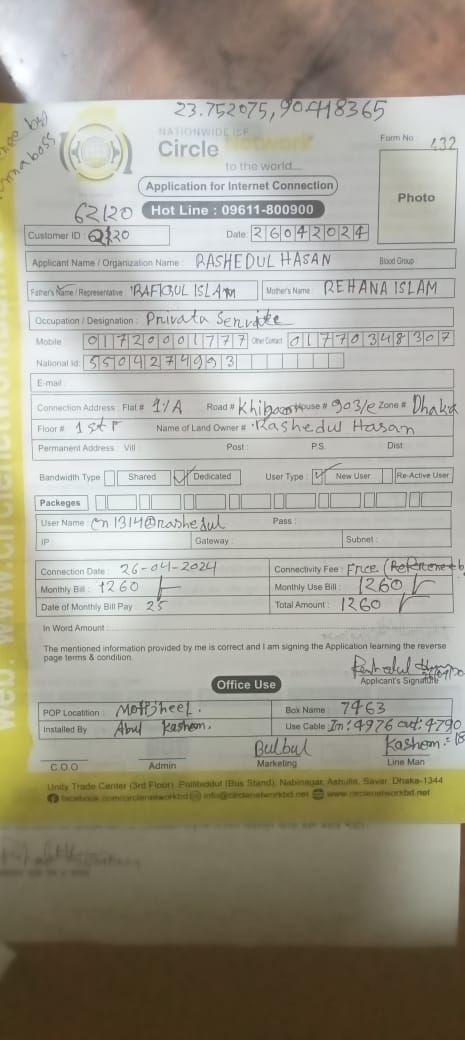 23.752075, 90.418365
NATIONWIDE ISP
Circle Network
to the world....
Form No : 432
Application for Internet Connection
Photo
62120
Hot Line : 09611-800900
Customer ID :
Date: 26042024
Applicant Name / Organization Name : RASHEDUL HASAN Blood Group:
Father's Name / Representative : RAFIQUL ISLAM Mother's Name REHANA ISLAM
Occupation / Designation : Privata Servate
Mobile 01720001777 Other Contact 01770348307
National Id: 5504274993
E-mail
Connection Address : Flat # 1/A Road # House # 903/e Zone # Dhaka
Floor # 1st Name of Land Owner # Rashedul Hasan
Permanent Address : Vill Post : P.S. Dist:
Bandwidth Type Shared Dedicated User Type : New User Re-Active User
Packeges
User Name cn1314@rashedul Pass :
IP : Gateway : Subnet :
Connection Date : 26-04-2024 Connectivity Fee : Free
Monthly Bill : 1260 Monthly Use Bill : 1260
Date of Monthly Bill Pay : 25 Total Amount : 1260
In Word Amount :
The mentioned information provided by me is correct and I am signing the Application learning the reverse
page terms & condition.
Applicant's Signature
Office Use
POP Locatition : Motijheel. Box Name : 7463
Installed By Abul Kashem. Use Cable In: 4976 out: 4790
Bulbul Kashem = 18
C.O.O Admin Marketing Line Man
Unity Trade Center (3rd Floor), Pollibiddut (Bus Stand), Nabinagar, Ashulia, Savar, Dhaka-1344
facebook.com/circlenetworkbd info@circlenetworkbd.net www.circlenetworkbd.net